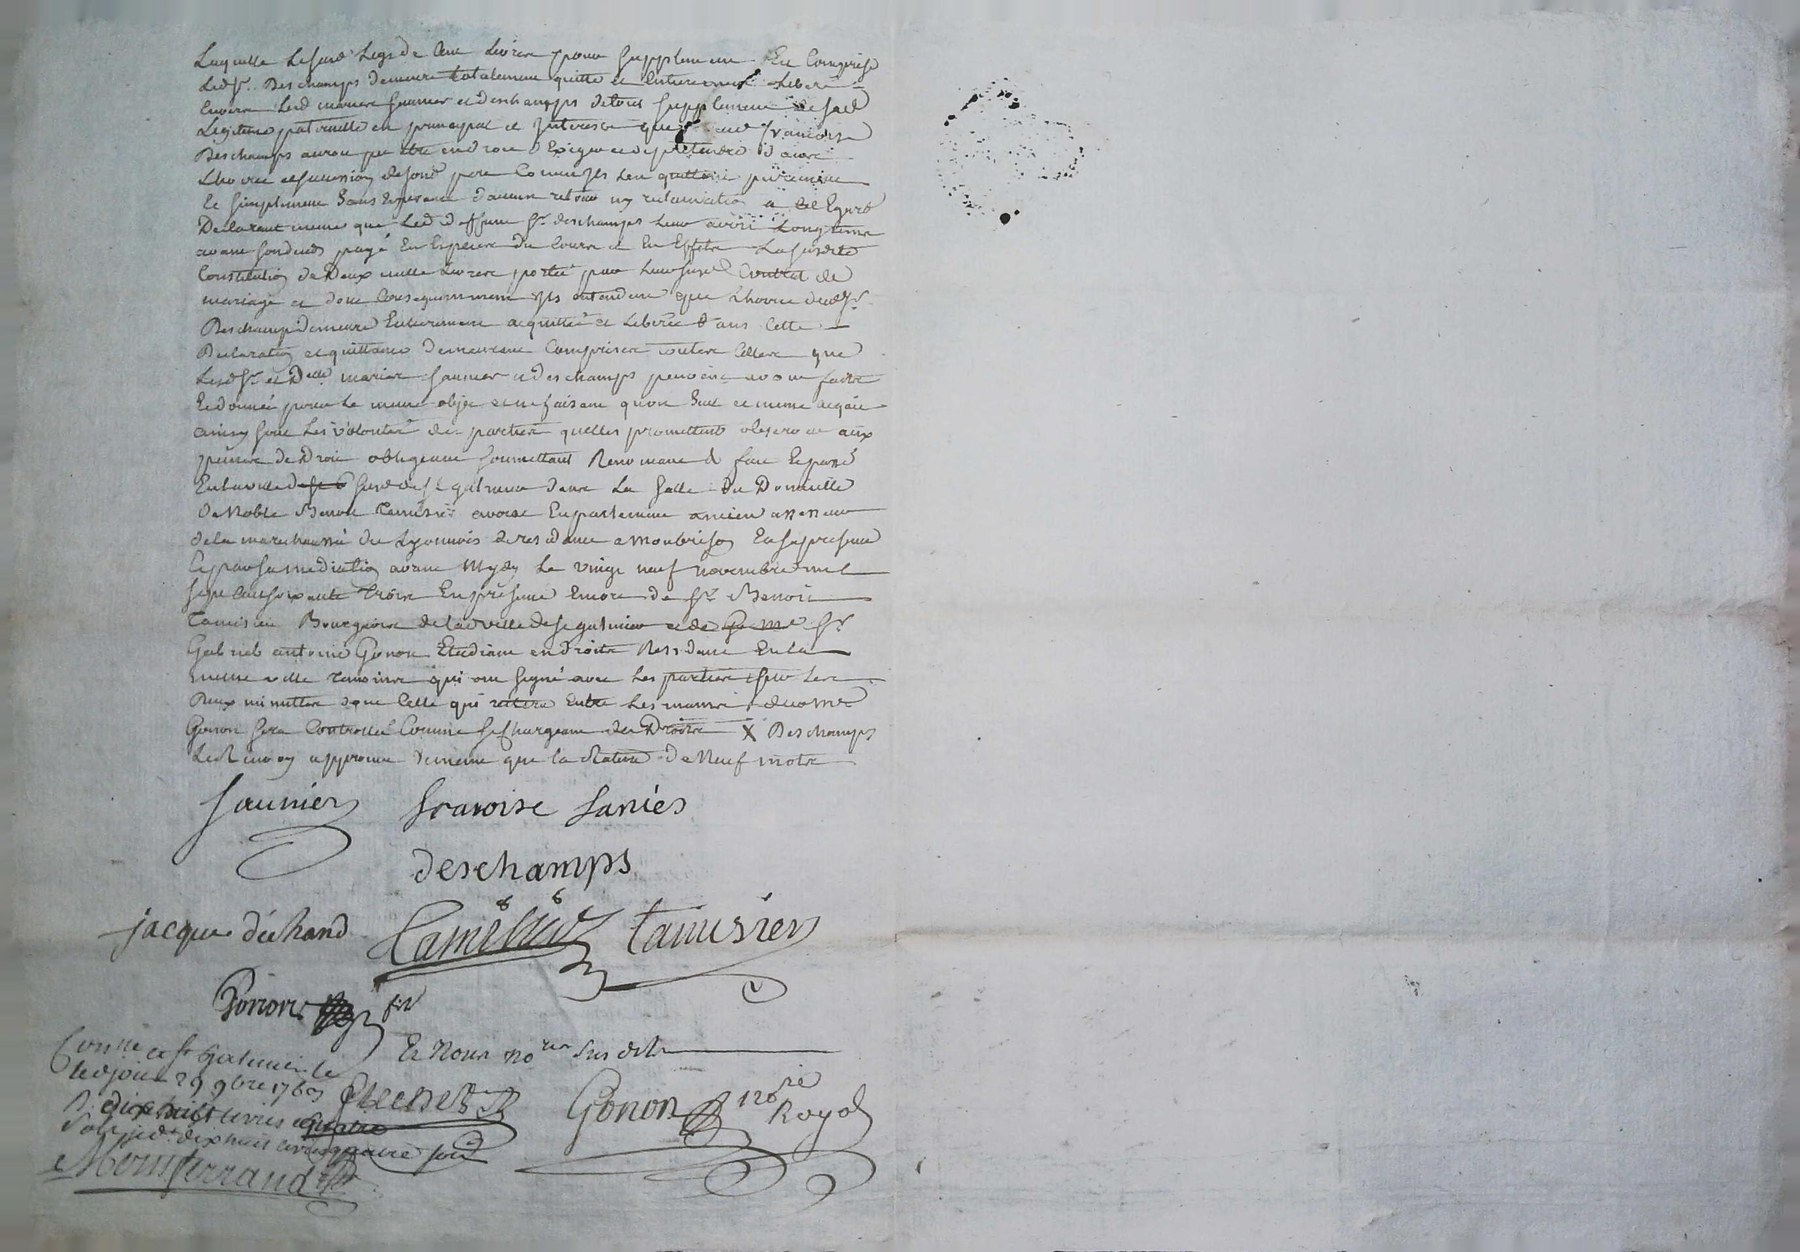 Laquelle Lesusd Legs de Cent Livres pour Supplement En Comprise
Ledsr. Deschamps demeure totalement quitte et Entierement Liberé
Envers Lesd mariés Saunier et deschamps de tous Supplement de sad
Legitime paternelle en principal et Interests que lad francoise
Deschamps auroit pu etre en droit d'Exiger et de pretendre d'avoir
Lhoirie et succession de sond pere Comme Ils Len quittent purement
et Simplement Sans Esperance d'aucun retour ny reclamation a cet Egard
Declarant meme que Led deffunt Sr. deschamps Leur avoit Longtems
avant son deces payé En Especes du Cours et En Effets Lasusdite
Constitution de Deux mille Livres portée par Leursusd Contrat de
mariage et donc Consequemment Ils entendent que Lhoirie dudsr.
Deschamps demeure Entierement acquittée et Liberée dans Cette
Declaration et quittance demeurent Comprises toutes Celles que
Lesdsr. et Delle mariés Saunier et deschamps peuvent avoir faites
Et données pour Le meme objet et ne faisant qu'un Seul et meme acquit
ainsy sont Les volontés des parties quelles promettent observer aux
peines de Droit obligeant Soumettant Renoncant & fait Et passé
En la ville de St Galmier dans La Salle du Domicille
De Noble Benoit Tamisier avocat En parlement ancien assesseur
de la marechaussée du Lyonnois de residence a Montbrison En sa presence
Et par sa mediation avant Mydy Le vingt neuf novembre mil
Sept Cent soixante trois En presence Encore de Sr. Benoit
Tamisier Bourgeois de lad ville de St galmier et de Sr.
Gabriel antoine Gonon Etudiant en droits Residant En la
meme ville temoins qui ont signé avec Les parties sur Les
Deux minuttes dont Celle qui restera Entre Les mains dud Me
Gonon sera Controllée Comme se Chargeant des Droits X Deschamps
Le Renvoy approuvé de meme que la Rature de Neuf mots
Saunier francoise Sanies
deschamps
jacque déchand Tamisier
Gonon
Et Nous nores Susdits
Conlle a St Galmier le
led jour 29 9bre 1763
R dix huit livres quatre
Sols
Gonon nore Royal
Montferrand